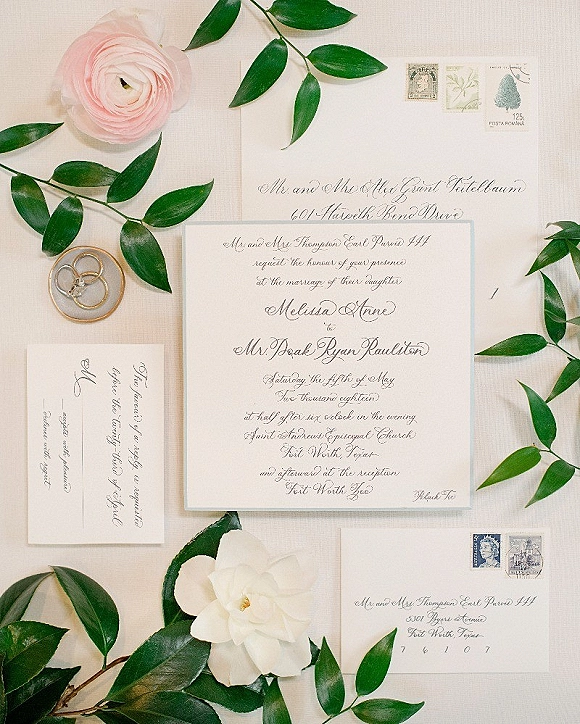 POSTA ROMÂNĂ
125
Mr. and Mrs. Alex Grant Teitelbaum
601 Drive
Mr. and Mrs. Thompson Earl Purvis III
request the honour of your presence
at the marriage of their daughter
Melissa Anne
to
Mr. Doak Ryan Raulston
Saturday the fifth of May
Two thousand eighteen
at half after six o'clock in the evening
Saint Andrews Episcopal Church
Fort Worth, Texas
and afterward at the reception
Fort Worth Zoo
Black Tie
The favour of a reply is requested
before the twenty-third of April
M
accepts with pleasure
declines with regret
Mr. and Mrs. Thompson Earl Purvis III
5301 Byers Avenue
Fort Worth Texas
7 6 1 0 7